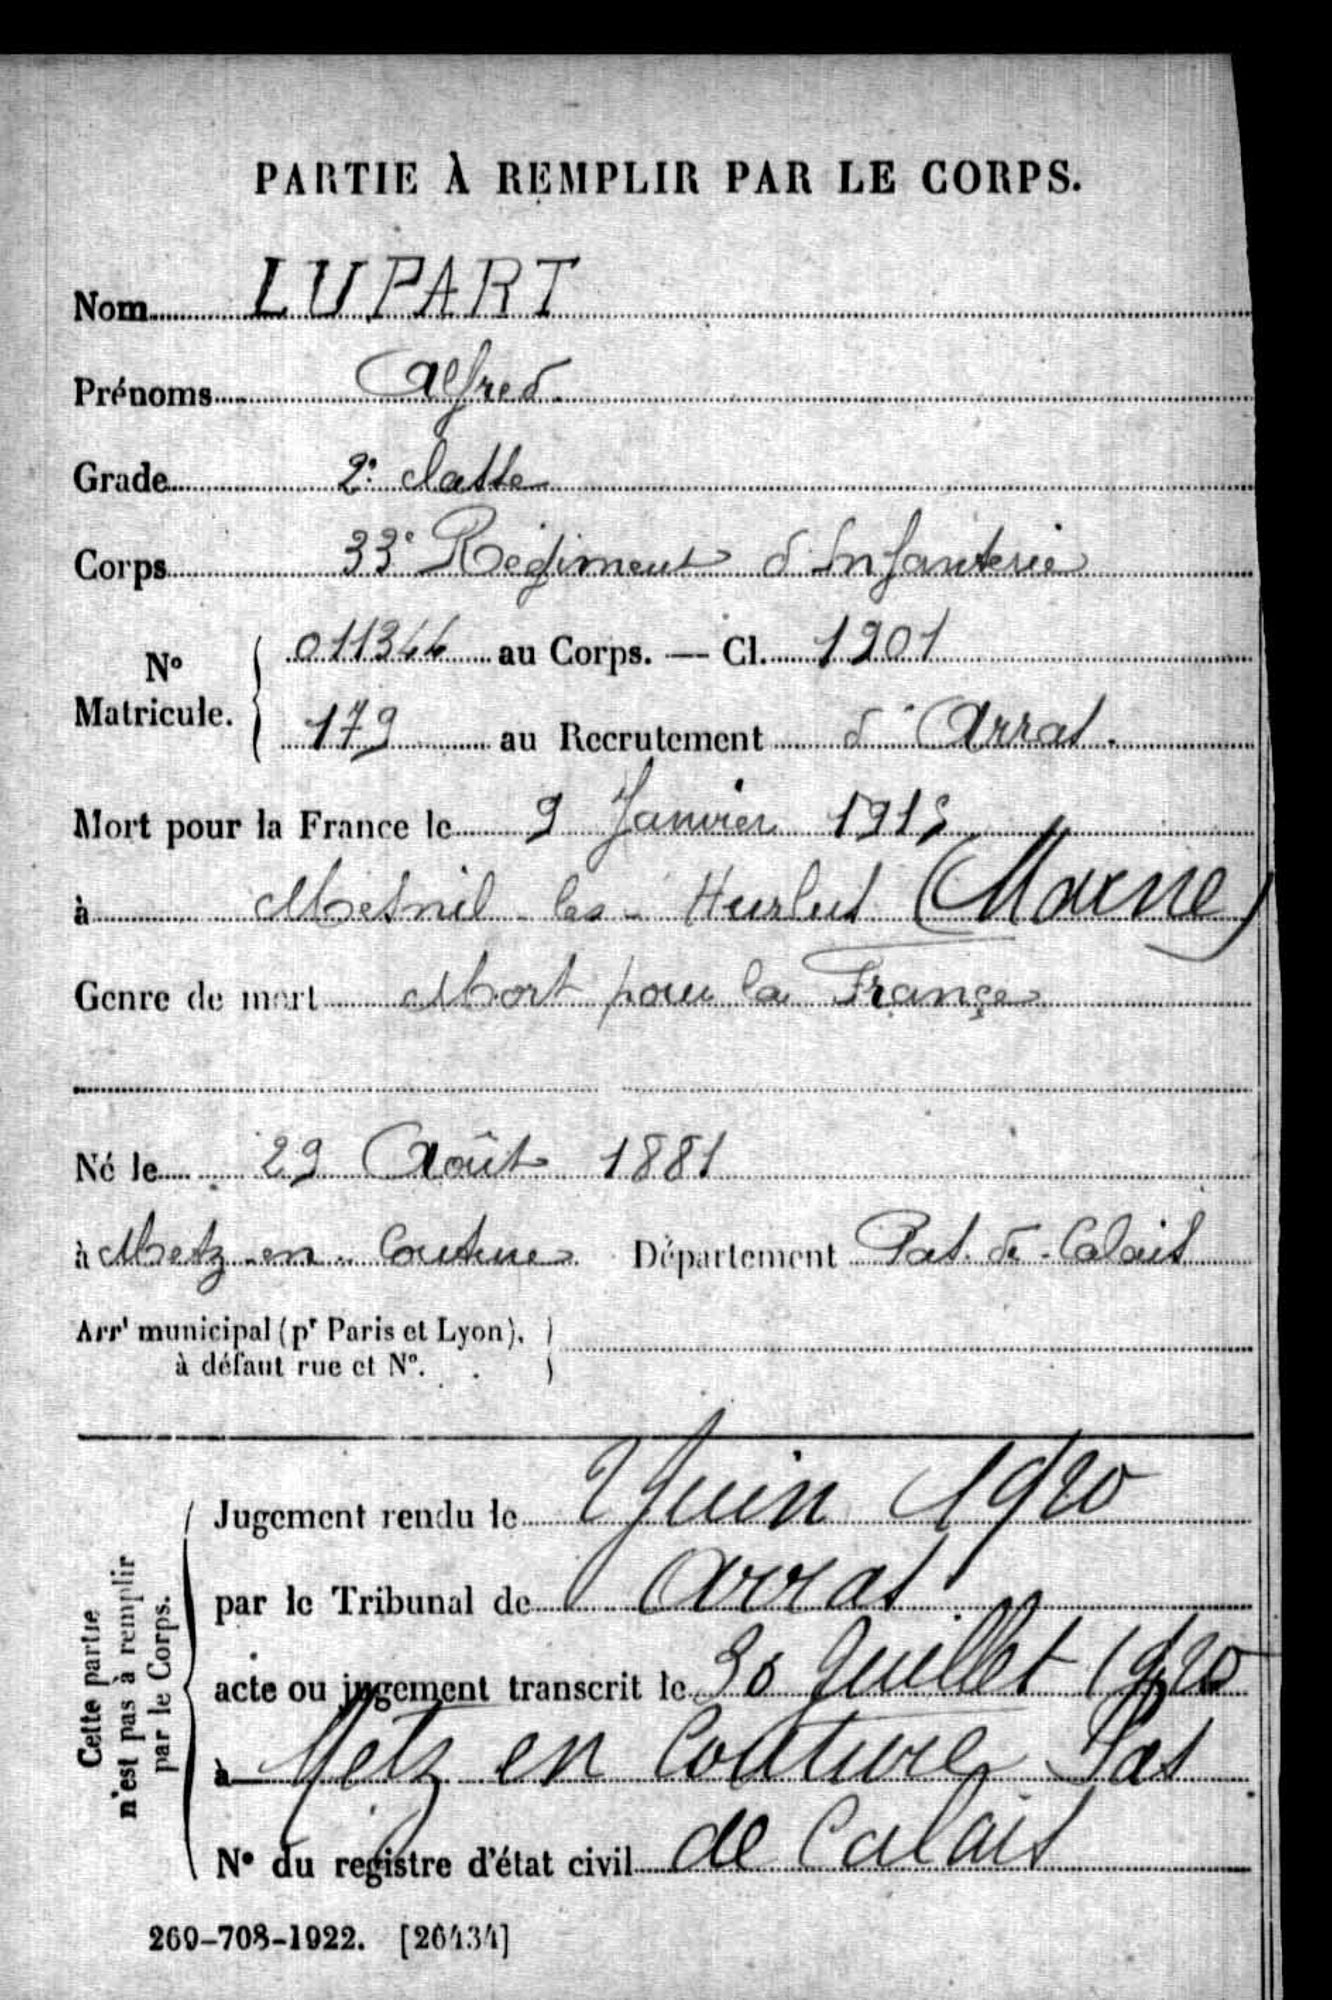 PARTIE À REMPLIR PAR LE CORPS.
Nom LUPART
Prénoms Alfred
Grade 2e classe
Corps 33e Régiment d'Infanterie
N° Matricule. 011344 au Corps. — Cl. 1901
179 au Recrutement d'Arras.
Mort pour la France le 9 Janvier 1915
à Mesnil-les-Hurlus (Marne)
Genre de mort Mort pour la France
Né le 29 Août 1881
à Metz-en-Couture Département Pas-de-Calais
Arrt municipal (pr Paris et Lyon),
à défaut rue et N°.
Cette partie
n'est pas à remplir
par le Corps.
Jugement rendu le Juin 1920
par le Tribunal de Arras
acte ou jugement transcrit le 30 Juillet 1920
à Metz en Couture Pas
N° du registre d'état civil de Calais
269-708-1922. [26434]